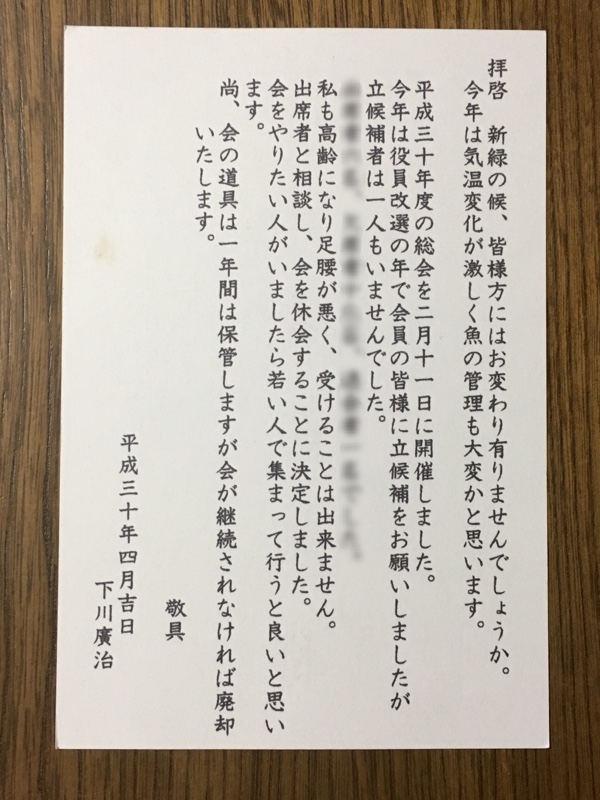 拝啓　新緑の候、皆様方にはお変わり有りませんでしょうか。
今年は気温変化が激しく魚の管理も大変かと思います。
平成三十年度の総会を二月十一日に開催しました。
今年は役員改選の年で会員の皆様に立候補をお願いしましたが
立候補者は一人もいませんでした。
私も高齢になり足腰が悪く、受けることは出来ません。
出席者と相談し、会を休会することに決定しました。
会をやりたい人がいましたら若い人で集まって行うと良いと思い
ます。
尚、会の道具は一年間は保管しますが会が継続されなければ廃却
いたします。
敬具
平成三十年四月吉日
下川廣治